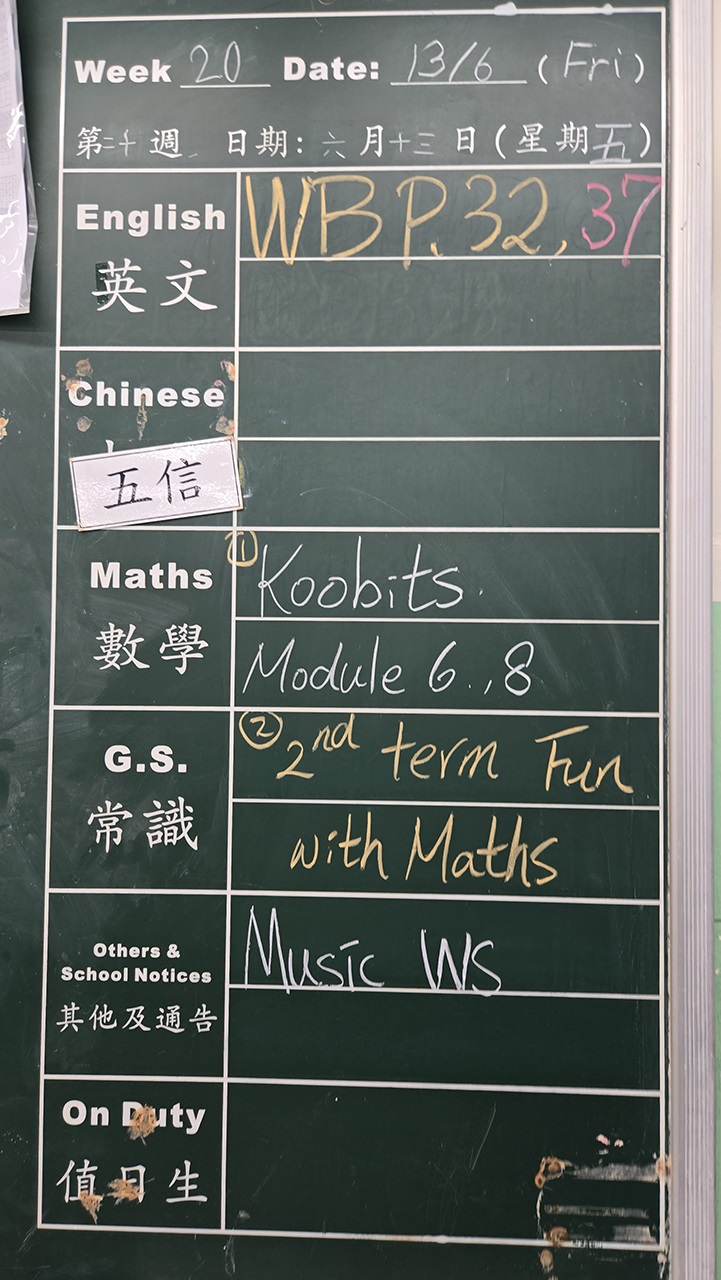 Week 20 Date: 13/6 (Fri)
第二十週 日期: 六月十三日(星期五)
English WB P.32, 37
英文
Chinese
五信
Maths ① Koobits.
數學 Module 6.,8
G.S. ② 2nd term Fun
常識 with Maths
Others &
School Notices Music WS
其他及通告
On Duty
值日生